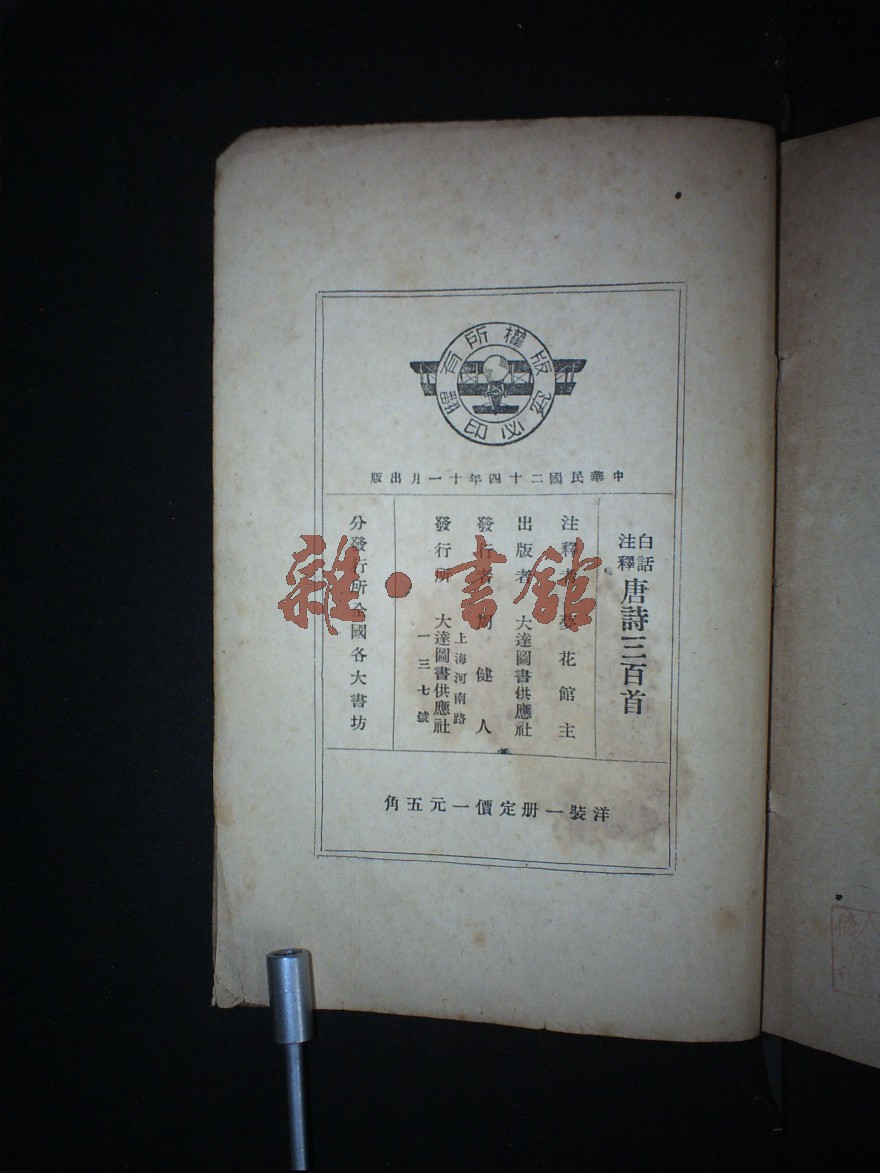 版權所有
翻印必究
中華民國二十四年十一月出版
白話
注釋
唐詩三百首
注釋者 夢花館主
出版者 大達圖書供應社
發行者 周健人
上海河南路
發行所 大達圖書供應社
一三七號
分發行所全國各大書坊
洋裝一册定價一元五角
雜·書館